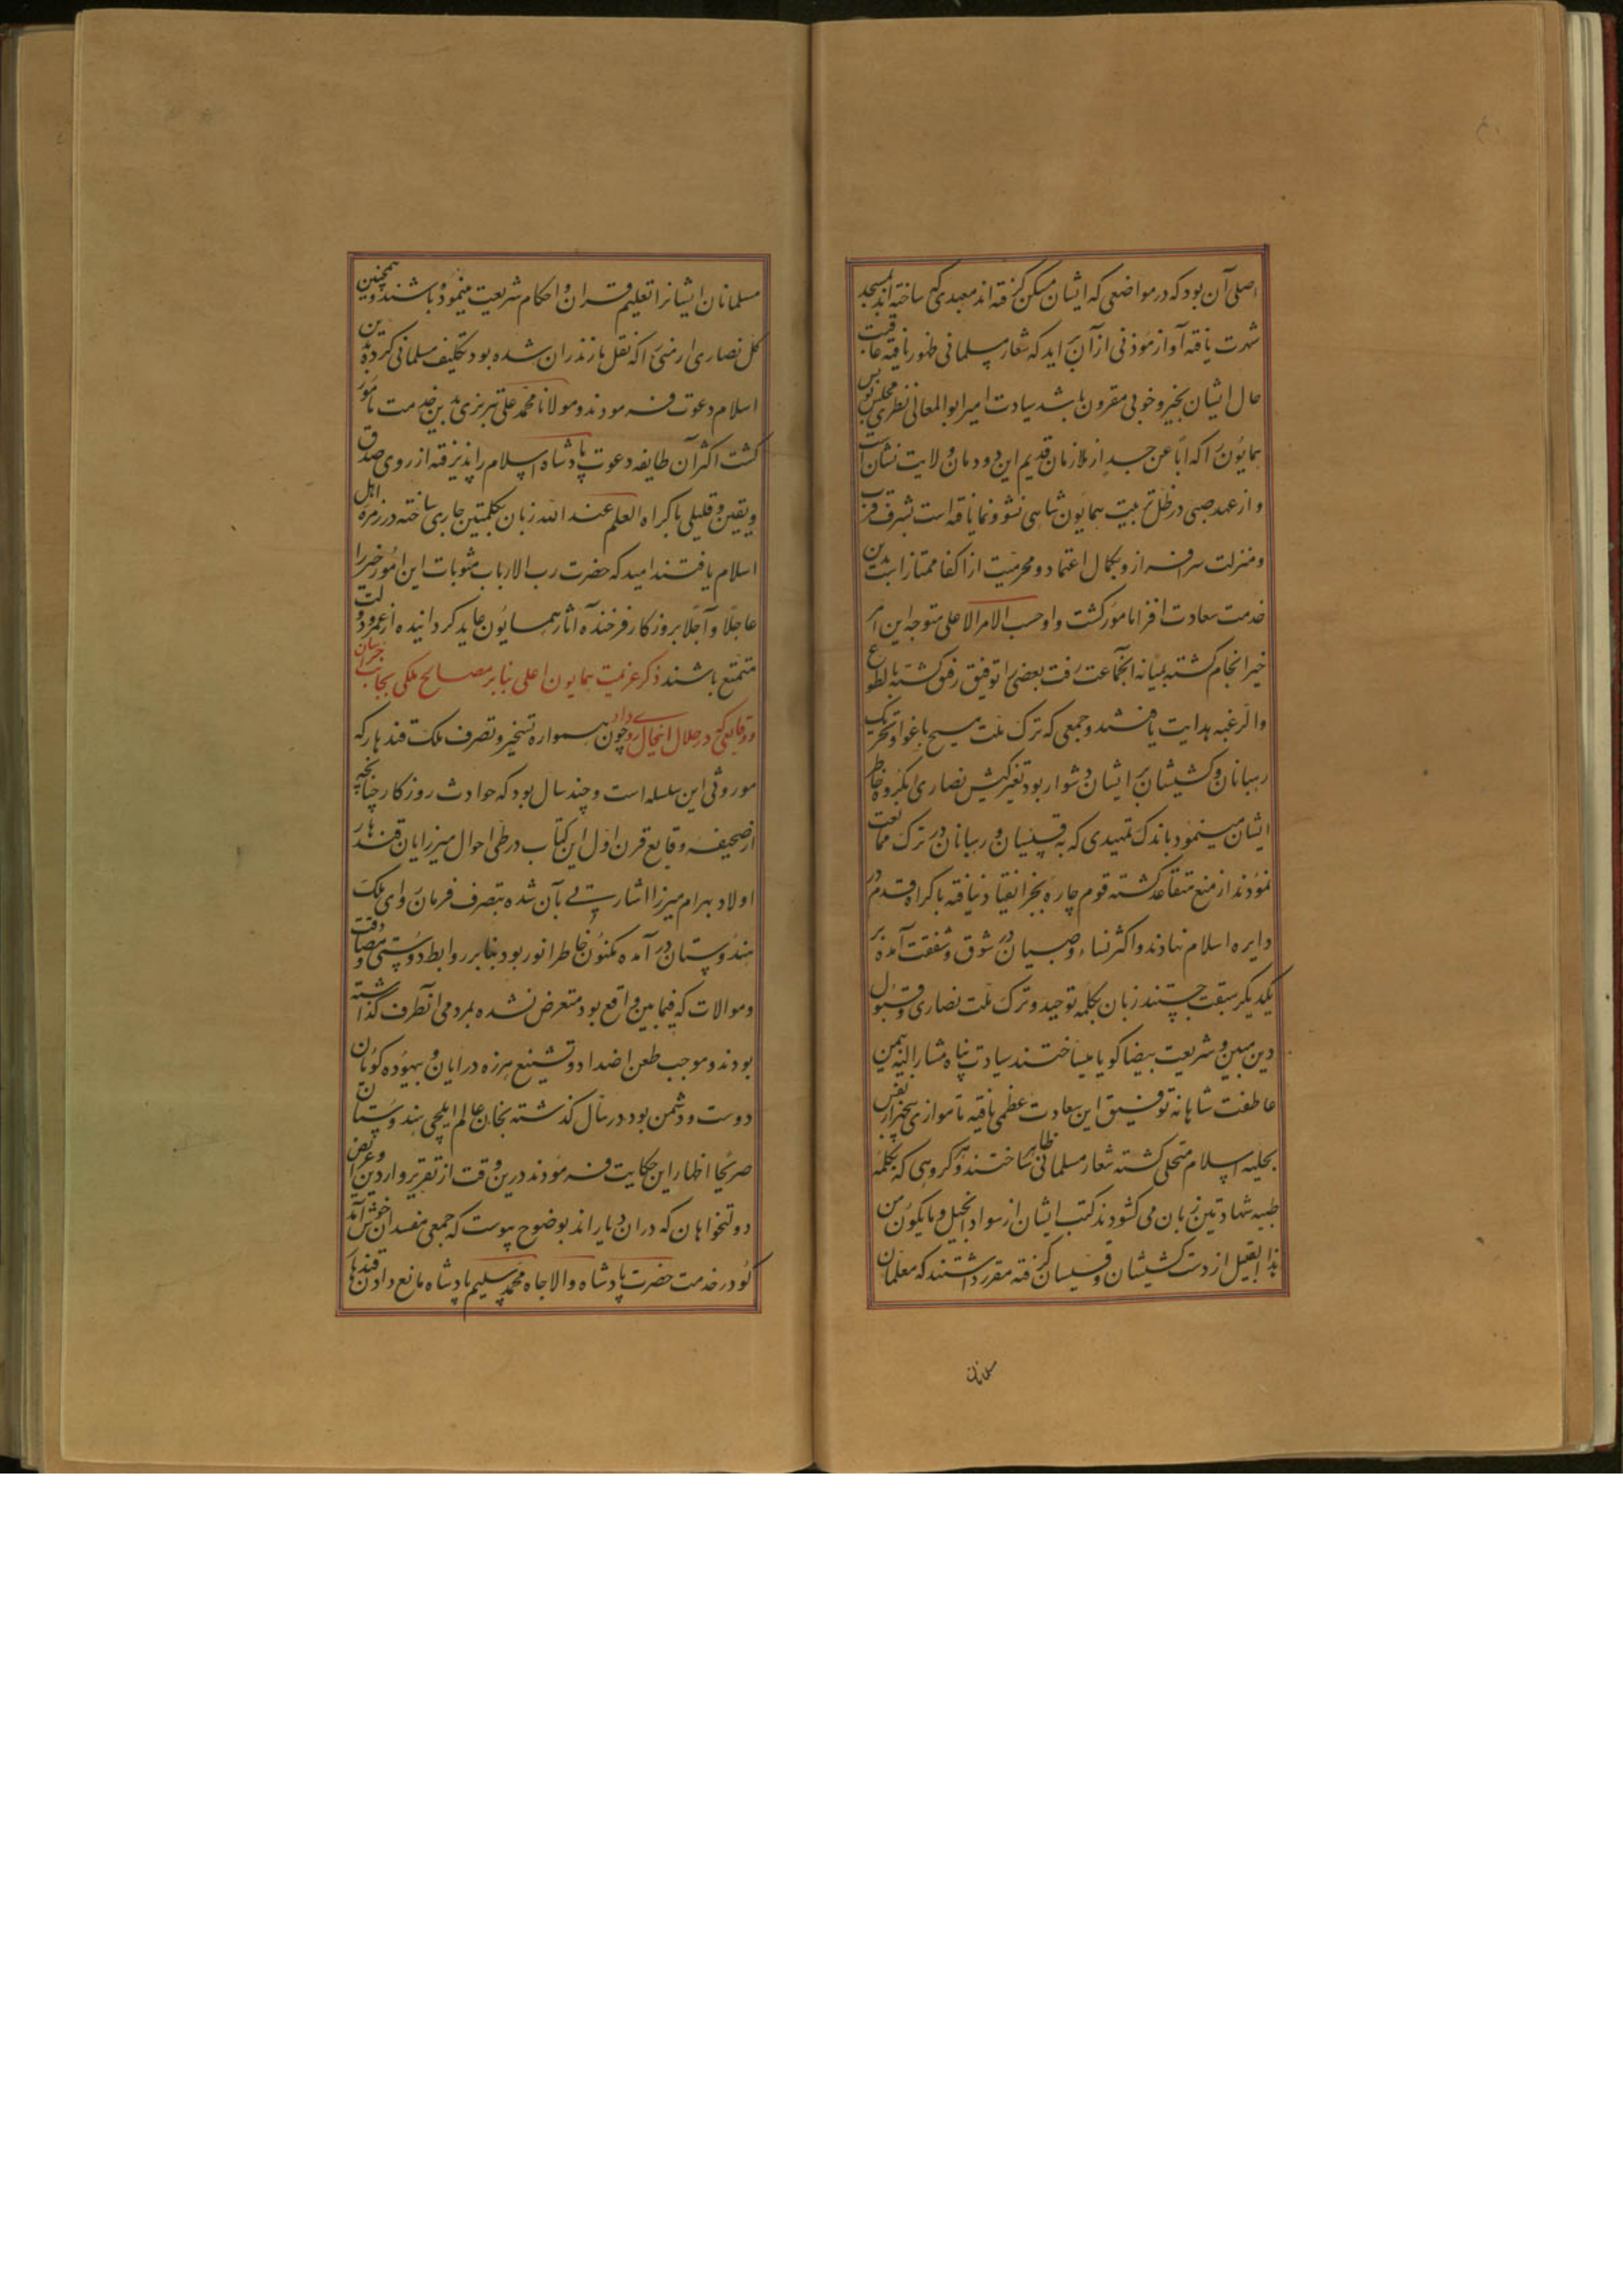 اصلی آن بود که در مواضعی که ایشان مسکن گرفته اند معبدی که ساخته اند بمسجد
شهرت یافته آواز مؤذنی از آن برآید که شعار مسلمانی ظهور یافته عاقبت
حال ایشان بخیر و خوبی مقرون باشد سیادت امیر ابوالمعالی نطری مجلس نویس
همایون را که اباً عن جد از ملازمان قدیم این دودمان ولایت نشان است
و از عهد صبی در ظل تربیت همایون شاهی نشو و نما یافته است بشرف قرب
و منزلت سرافراز و بکمال اعتماد و محرمیت از اکفا ممتاز است بدین
خدمت سعادت افزا مامور گشت و او حسب الامر الاعلی متوجه این امر
خیر انجام گشته بمیانه آنجماعت رفت بعضی را توفیق رفیق گشته بالطوع
والرغبه هدایت یافتند و جمعی که ترک ملت مسیح باغوا و تحریک
رهبانان و کشیشان بر ایشان دشوار بود تغیر کیش نصاری مکروه خاطر
ایشان مینمود باندک تمهیدی که به قسیسان و رهبانان در ترک ممانعت
نمودند از منع متقاعد گشته قوم چاره بجز انقیاد نیافته باکراه قدم در
دایره اسلام نهادند و اکثر نساء و صبیان در شوق و شفقت آمده بر
یکدیگر سبقت جستند زبان بکلمه توحید و ترک ملت نصاری و قبول
دین مبین و شریعت بیضا گویا میساختند سیادت پناه مشارالیه بیمن
عاطفت شاهانه توفیق این سعادت عظمی یافته تا موازی پنجهزار نفس
بحلیه اسلام متحلی گشته شعار مسلمانی ظاهر ساختند و هر گروهی که بکلمه
طیبه شهادتین زبان می گشودند کتب ایشان از سواد انجیل و ما یکون من
هذا القبیل از دست کشیشان و قسیسان گرفته مقرر داشتند که معلمان
مسلمانان
مسلمانان ایشانرا تعلیم قران و احکام شریعت مینموده باشند و همچنین
کل نصاری ارمنی را که نقل مازندران شده بود تکلیف مسلمانی کرده بدین
اسلام دعوت فرمودند و مولانا محمد علی تبریزی بدین خدمت مامور
گشت اکثر آن طایفه دعوت پادشاه اسلام را پذیرفته از روی صدق
و یقین و قلیلی باکراه العلم عند الله زبان بکلمتین جاری ساخته در زمره اهل
اسلام یافتند امید که حضرت رب الارباب مثوبات این امور خیر را
عاجلا و آجلا بروزگار فرخنده آثار همایون عاید گردانیده از عمر و دولت
متمتع باشند ذکر عزیمت همایون اعلی بنا بر مصالح ملکی بجانب خراسان
و وقایعی که در خلال اینحال روی داد چون همواره تسخیر و تصرف ملک قندهار که
موروثی این سلسله است و چند سال بود که حوادث روزگار چنانچه
از صحیفه وقایع قرن اول این کتاب در طی احوال میرزایان قندهار
اولاد بهرام میرزا اشارتی بآن شده بتصرف فرمان روای ملک
هندوستان در آمده مکنون خاطر انور بود بنابر روابط دوستی و مصادقت
و موالات که فیمابین واقع بود متعرض نشده بمردمی آنطرف گذاشته
بودند و موجب طعن اضداد و تشنیع هرزه درایان و بیهوده گویان
دوست و دشمن بود در سال گذشته بخان عالم ایلچی هندوستان
صریحا اظهار این حکایت فرمودند درین وقت از تقریر واردین و عرایض
دولتخواهان که در ان دیار اند بوضوح پیوست که جمعی مفسدان خوش آمد
گو در خدمت حضرت پادشاه والاجاه محمد سلیم پادشاه مانع دادن قندهار